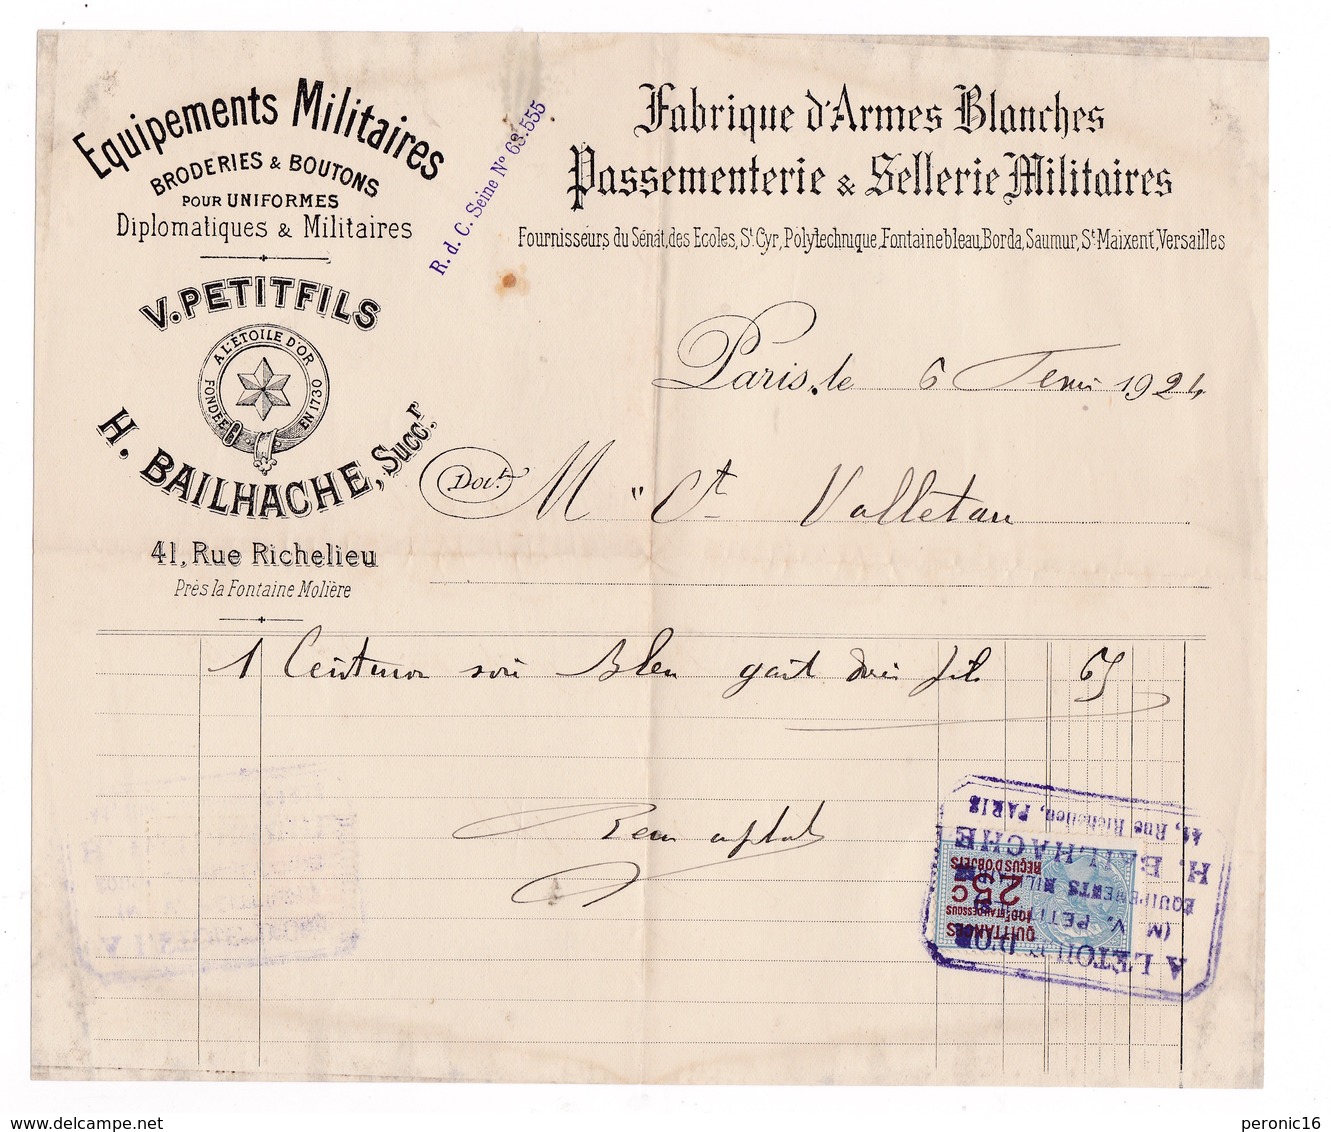 Equipements Militaires
BRODERIES & BOUTONS
POUR UNIFORMES
Diplomatiques & Militaires
V. PETITFILS
A L'ÉTOILE D'OR
FONDÉE EN 1730
H. BAILHACHE, Succr.
41, Rue Richelieu
Près la Fontaine Molière
R. d. C. Seine N° 63.555
Fabrique d'Armes Blanches
Passementerie & Sellerie Militaires
Fournisseurs du Sénat, des Ecoles, St Cyr, Polytechnique, Fontainebleau, Borda, Saumur, St Maixent, Versailles
Paris, le 6 1924
Doit M Ct Valletau
1 Ceinturon soie Bleu fil 65
A L'ÉTOILE D'OR
(M) V. PETIT
EQUIPEMENTS MIL
H. BAILHACHE
41, Rue Richelieu, PARIS
QUITTANCES
25c
REÇUS D'OBJETS
delcampe.net
peronic16